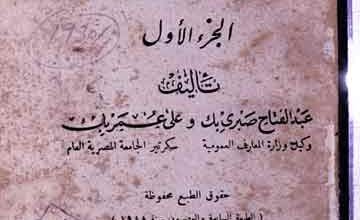 الجزء الأول
تأليف
عبد الفتاح صبري بك و على عمر بك
وكيل وزارة المعارف العمومية سكرتير الجامعة المصرية العام
حقوق الطبع محفوظة